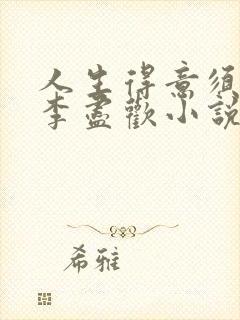 人生得意須
李盡歡小說
希雅